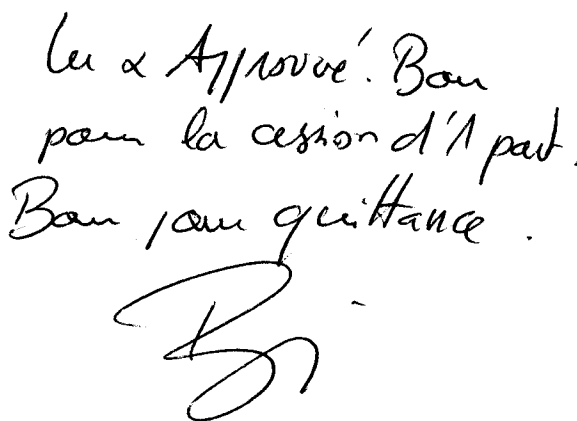 Lu & Approuvé. Bon
pour la cession d'1 part.
Bon pour quittance.